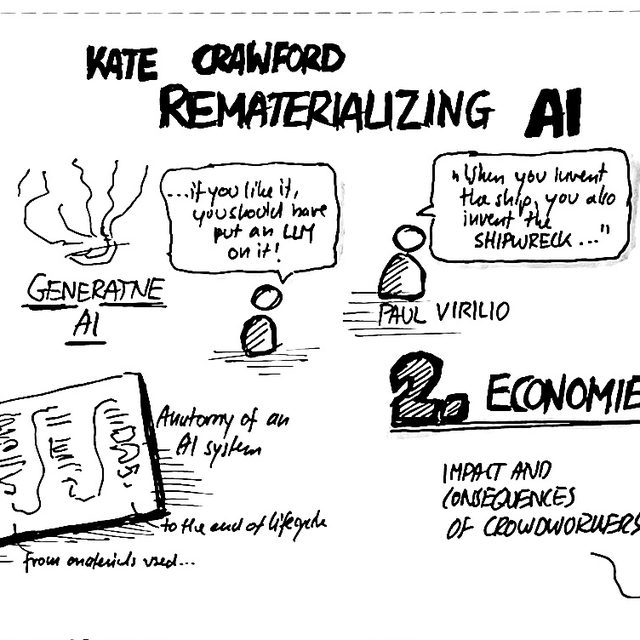 KATE CRAWFORD
REMATERIALIZING AI
...if you like it,
you should have
put an LLM
on it!
"When you invent
the ship, you also
invent the
SHIPWRECK..."
GENERATIVE
AI
PAUL VIRILIO
2. ECONOMIE
Anatomy of an
AI system
to the end of lifecycle
from materials used...
IMPACT AND
CONSEQUENCES
OF CROWDWORKERS